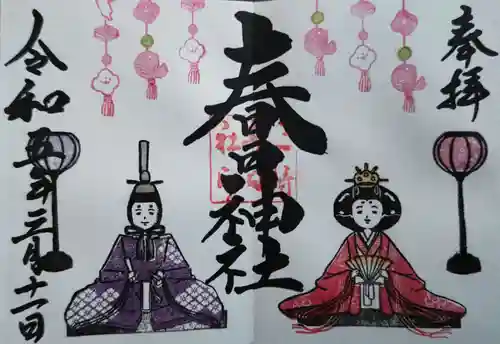 奉拝
春日神社
令和五年三月十一日